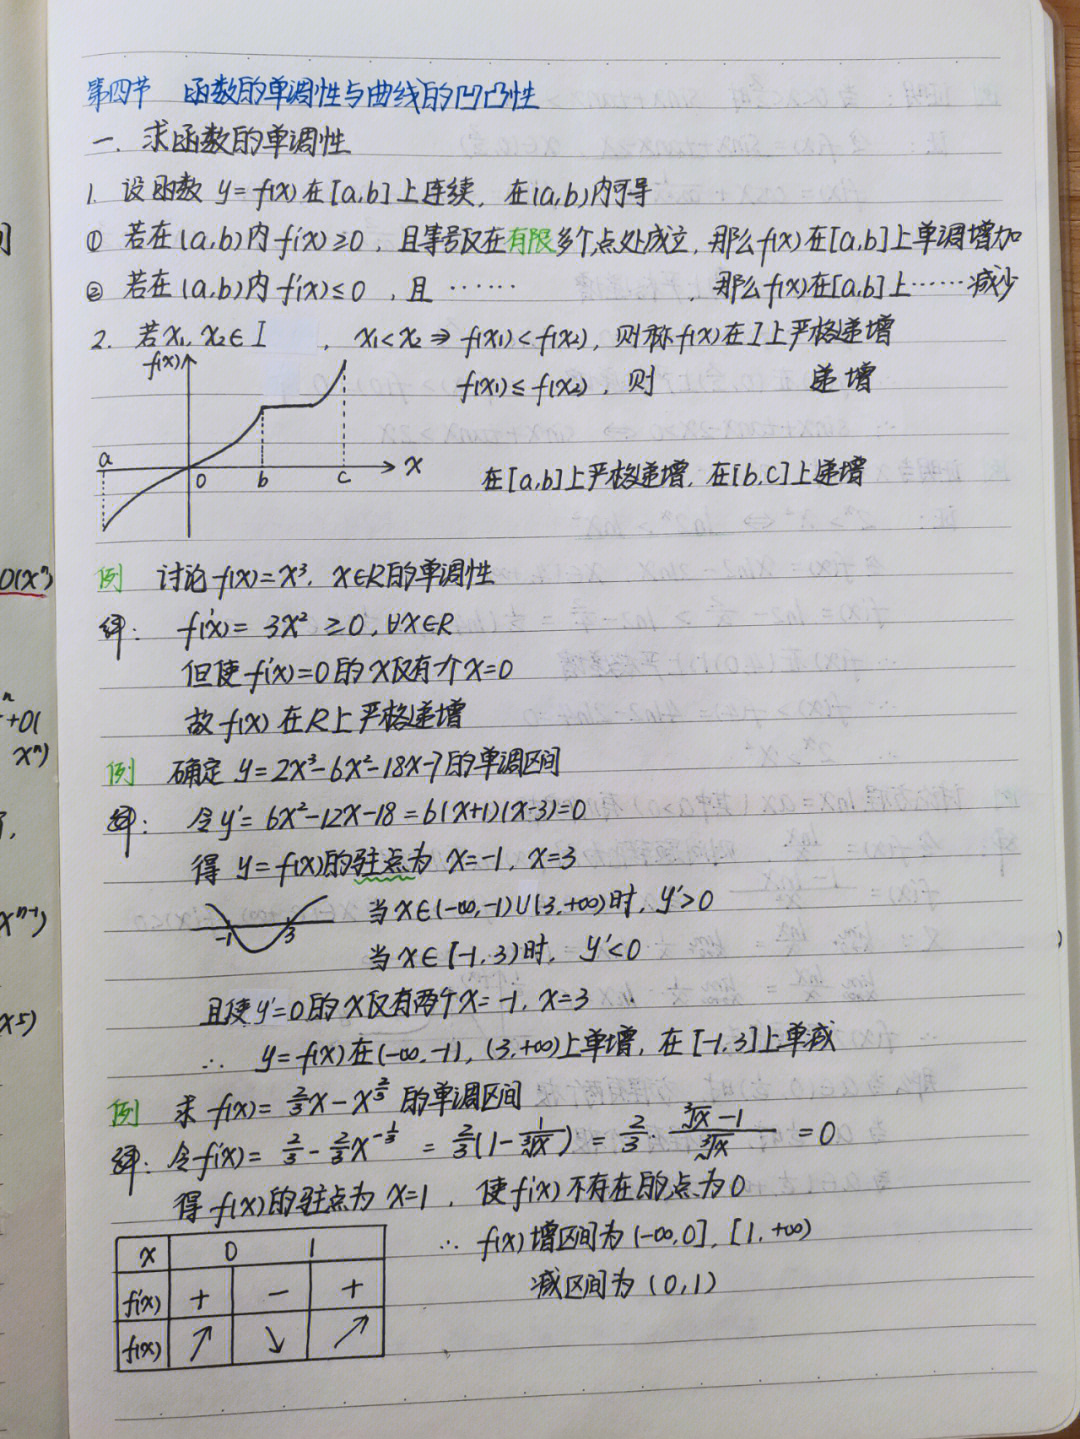 第四节 函数的单调性与曲线的凹凸性
一. 求函数的单调性
1. 设函数 y=f(x) 在 [a,b] 上连续, 在(a,b)内可导
① 若在(a,b)内 f'(x)≥0, 且等号仅在有限多个点处成立, 那么f(x)在[a,b]上单调增加
② 若在(a,b)内 f'(x)≤0, 且 ······, 那么f(x)在[a,b]上······减少
2. 若x₁, x₂∈I, x₁<x₂ ⇒ f(x₁)<f(x₂), 则称f(x)在I上严格递增
f(x₁)≤f(x₂), 则 递增
f(x)
a 0 b c x
在[a,b]上严格递增, 在[b,c]上递增
例 讨论 f(x)=x³, x∈R的单调性
解: f'(x)= 3x² ≥0, ∀x∈R
但使f'(x)=0的x仅有个x=0
故 f(x) 在R上严格递增
例 确定 y=2x³-6x²-18x-7的单调区间
解: 令y'= 6x²-12x-18=6(x+1)(x-3)=0
得 y=f(x)的驻点为 x=-1, x=3
-1 3
当x∈(-∞,-1)∪(3,+∞)时, y'>0
当x∈[-1,3)时, y'<0
且使y'=0的x仅有两个x=-1, x=3
∴ y=f(x)在(-∞,-1), (3,+∞)上单增, 在[-1,3]上单减
例 求 f(x)= 2/3x-x^(2/3) 的单调区间
解: 令f'(x)= 2/3-2/3x^(-1/3) = 2/3(1-1/∛x) = 2/3·(∛x-1)/∛x =0
得 f(x)的驻点为 x=1, 使f'(x)不存在的点为0
x 0 1
f'(x) + - +
f(x) ↗ ↘ ↗
∴ f(x)增区间为 (-∞,0], [1,+∞)
减区间为 (0,1)
O(xⁿ)
+O(
xⁿ)
xⁿ⁻¹)
x5)